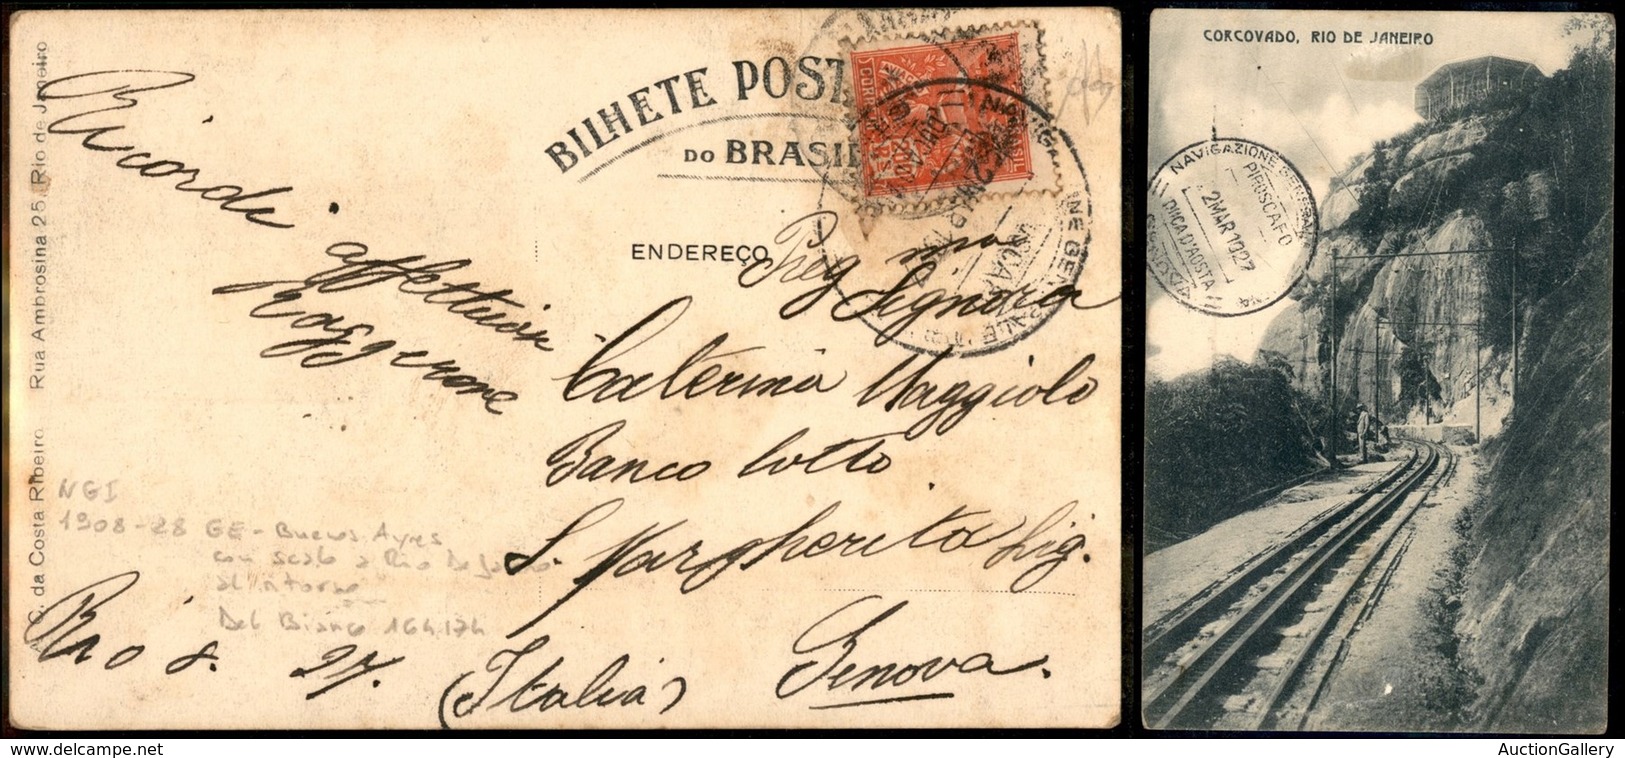 A. C. da Costa Ribeiro. Rua Ambrosina 25 Rio de Janeiro
BILHETE POST
DO BRASIL
ENDEREÇO
Ricordi
affettuosi
Preg ma
Signora
Caterina Maggiolo
Banco Lotto
S. Margherita Lig.
Genova.
(Italia)
Rio 8. 27.
NGI
1908-28 GE-Buenos Ayres
con scalo a Rio De Janeiro
al ritorno
Del Bianco 164.174
CORCOVADO, RIO DE JANEIRO
NAVIGAZIONE GENERALE
PIROSCAFO
2MAR.1927
DUCA D'AOSTA
AuctionGallery